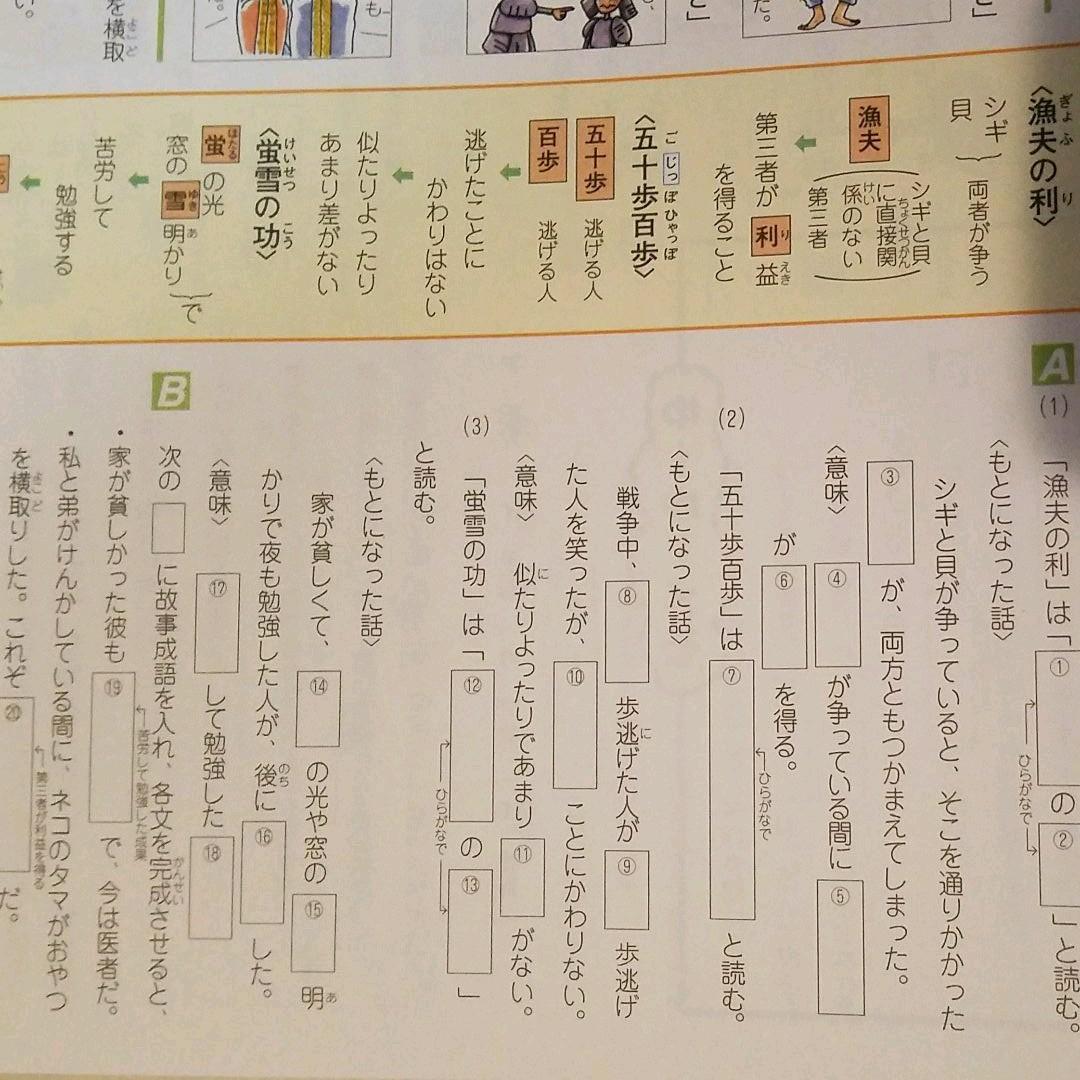 〈漁夫の利〉
シギ
貝
両者が争う
漁夫
シギと貝
に直接関
係のない
第三者
第三者が利益
を得ること
〈五十歩百歩〉
五十歩 逃げる人
百歩 逃げる人
逃げたことに
かわりはない
似たりよったり
あまり差がない
〈蛍雪の功〉
蛍の光
窓の雪明かり
で
苦労して
勉強する
を横取
A
(1) 「漁夫の利」は「① の ② 」と読む。
ひらがなで
〈もとになった話〉
シギと貝が争っていると、そこを通りかかった
③ が、両方ともつかまえてしまった。
〈意味〉 ④ が争っている間に ⑤
が ⑥ を得る。
(2) 「五十歩百歩」は ⑦ と読む。
ひらがなで
〈もとになった話〉
戦争中、⑧ 歩逃げた人が ⑨ 歩逃げ
た人を笑ったが、⑩ ことにかわりない。
〈意味〉 似たりよったりであまり ⑪ がない。
(3) 「蛍雪の功」は「⑫ の ⑬ 」
ひらがなで
と読む。
〈もとになった話〉
家が貧しくて、⑭ の光や窓の ⑮ 明
かりで夜も勉強した人が、後に ⑯ した。
〈意味〉 ⑰ して勉強した ⑱
B
次の に故事成語を入れ、各文を完成させると、
・家が貧しかった彼も ⑲ で、今は医者だ。
苦労して勉強した成果
・私と弟がけんかしている間に、ネコのタマがおやつ
を横取りした。これぞ ⑳ だ。
第三者が利益を得る